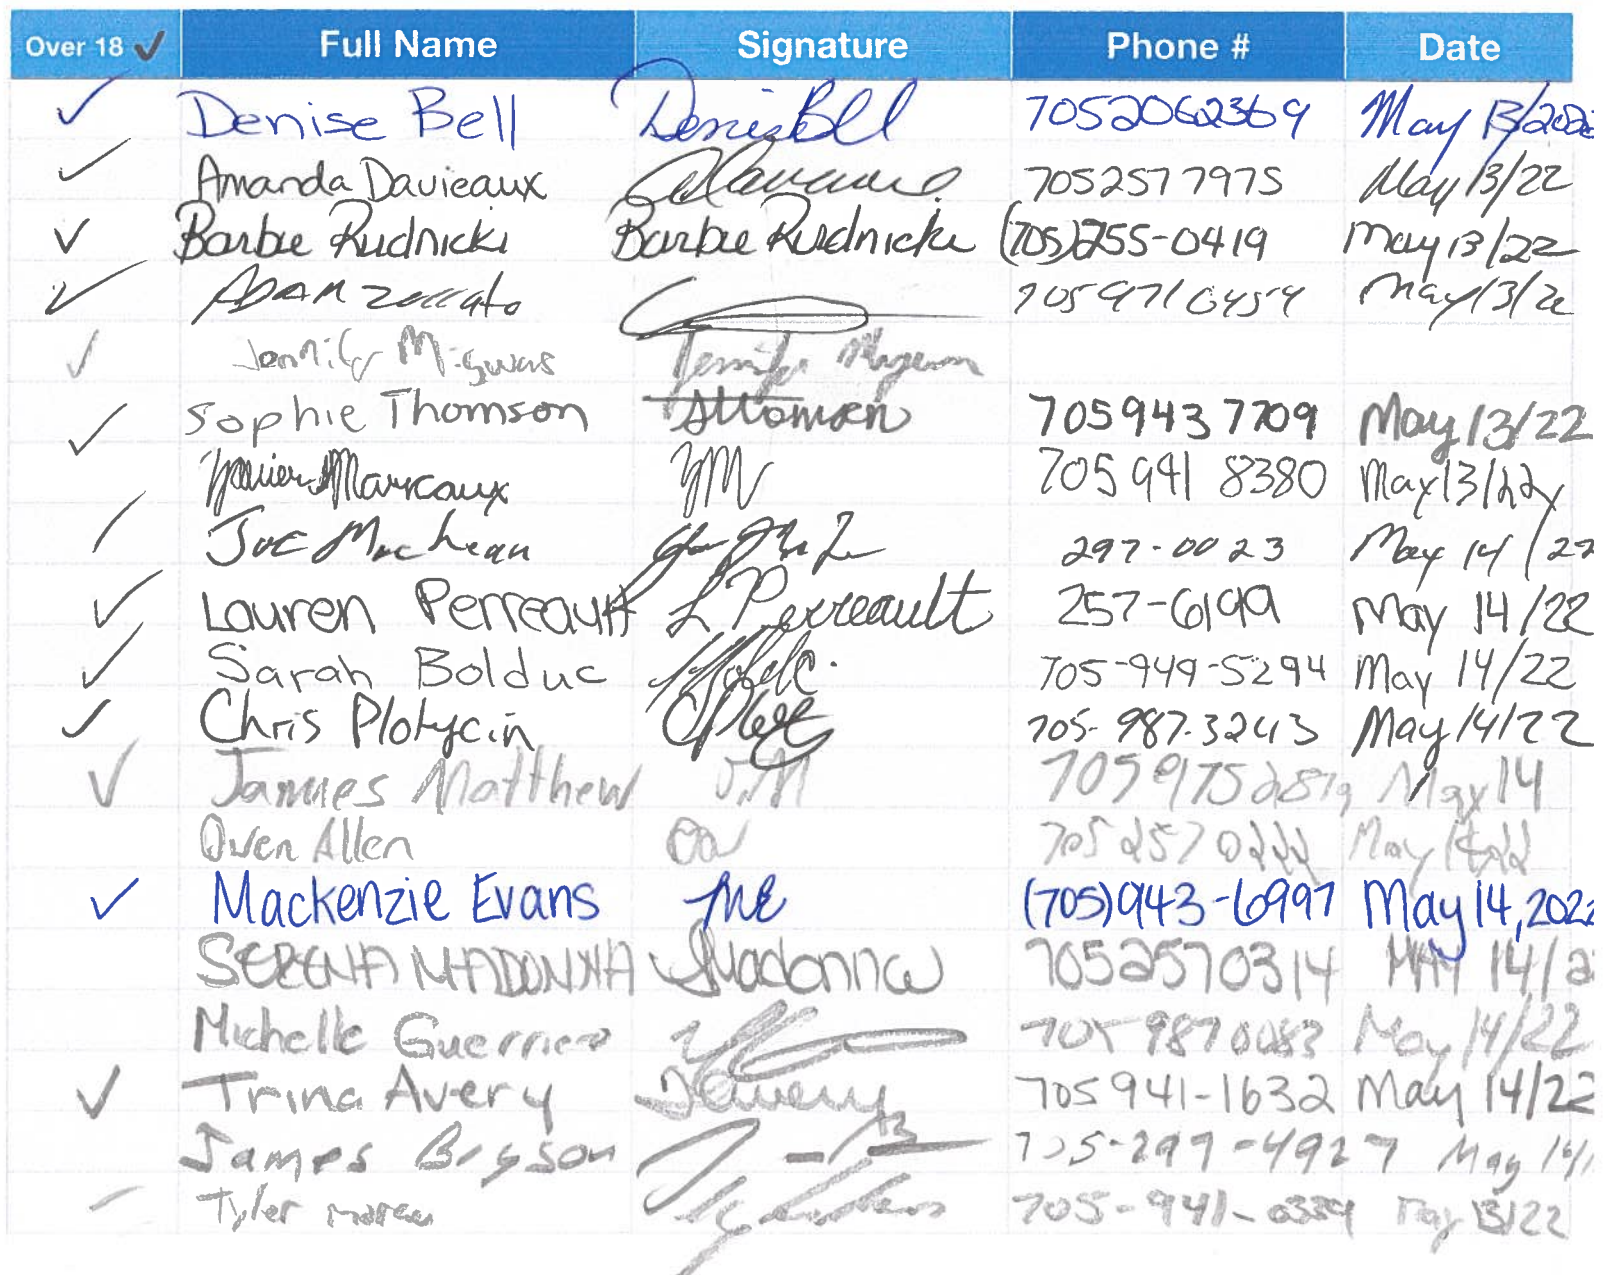 Over 18 ✓ Full Name Signature Phone # Date
✓ Denise Bell Denise Bell 7052062369 May 13/2022
✓ Amanda Davieaux 7052577975 May 13/22
✓ Barbie Rudnicki Barbie Rudnicki (705)255-0419 May 13/22
✓ ADAM 7059710454 May 13/22
✓ Jennifer
✓ Sophie Thomson SThomson 705 943 7709 May 13/22
Marcoux 705 941 8380 May 13/22
Joe MacLean 297-0023 May 14/22
✓ Lauren Perreault L Perreault 257-6199 May 14/22
✓ Sarah Bolduc 705-949-5294 May 14/22
✓ Chris Plotycin 705-987-3243 May 14/22
✓ Jammes Matthew J.M May 14
Owen Allen OA 7052570222 May 14/22
✓ Mackenzie Evans ME (705)943-6997 May 14, 2022
SERENA MADONNA SMadonna 7052570314 MAY 14/22
Michelle 705 9870083 May 14/22
✓ Trina Avery TAvery 705 941-1632 May 14/22
James 705-297-4927 May 14/
Tyler 705-941-0334 May 13/22